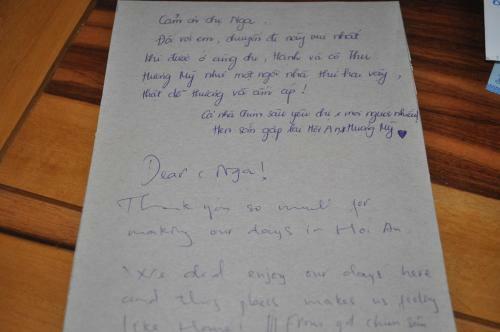 Cảm ơn chị Nga.
Đối với em, chuyến đi này vui nhất
khi được ở cùng chị, Hạnh và cô Thu
Hương Mỹ như một ngôi nhà thứ hai vậy,
thật dễ thương và ấm áp!
Cả nhà yêu chị x mọi người nhiều!
Hẹn sớm gặp lại Hội An x Hương Mỹ
Dear c Nga!
Thank you so much for
making our days in Hoi An.
We did enjoy our days here
and this place makes us feeling
like Home! !!! From